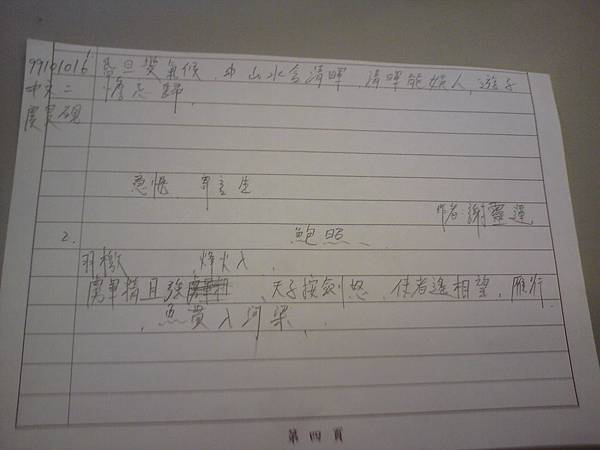 99101016
中文二
昏旦變氣候,中山水含清暉,清暉能娛人,游子
憺忘歸,
寄言 生
作者謝靈運
2. 鮑照
羽檄 烽火入,
虜軍精且強 、天子按劍怒、使者遙相望,雁行
,魚貫入河梁,
第四頁